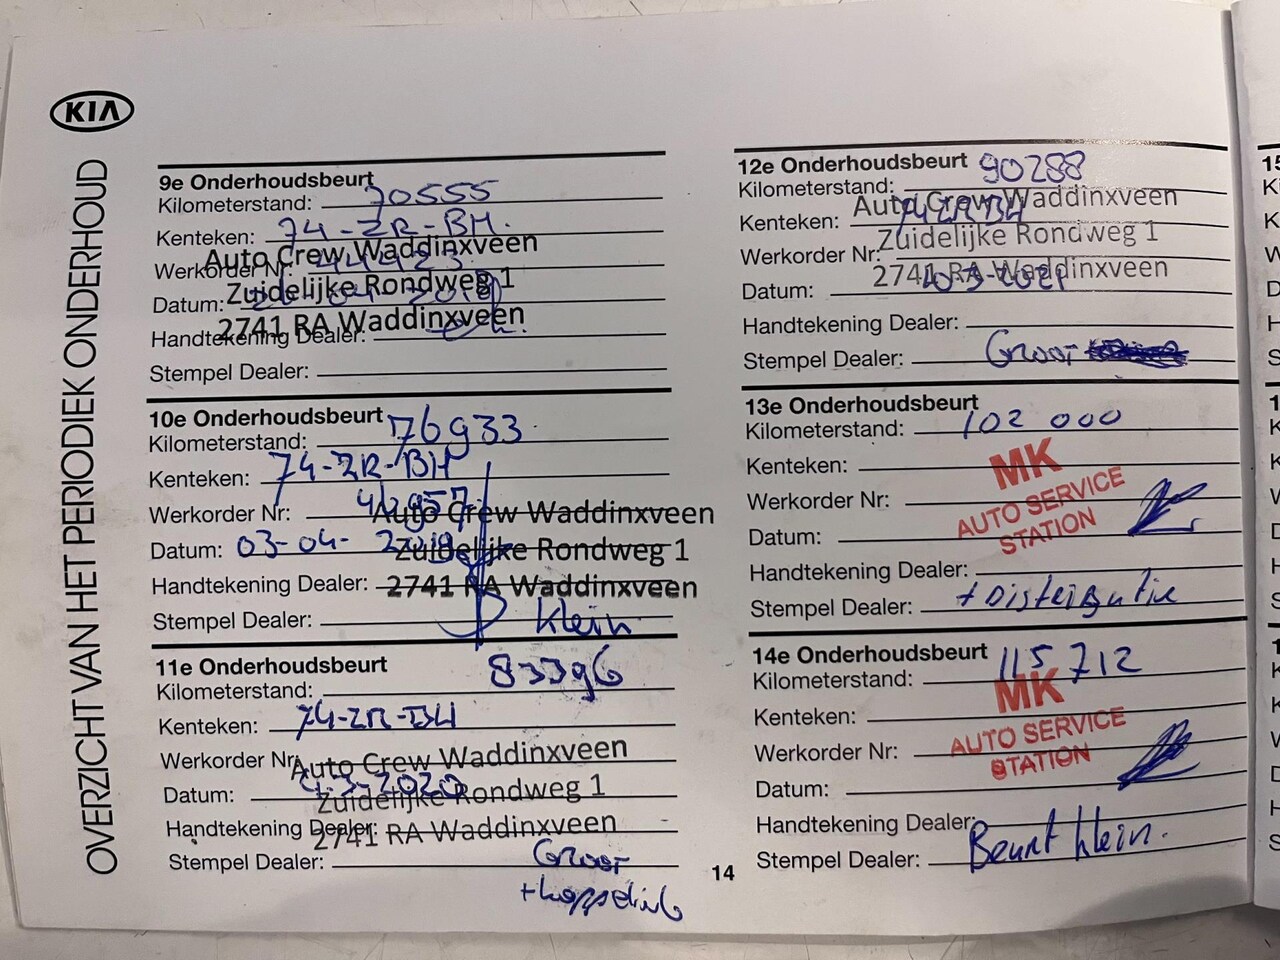 KIA
OVERZICHT VAN HET PERIODIEK ONDERHOUD
9e Onderhoudsbeurt
Kilometerstand: 70555
Kenteken: 74-ZR-BH.
Auto Crew Waddinxveen
Werkorder Nr:
Zuidelijke Rondweg 1
Datum:
2741 RA Waddinxveen
Handtekening Dealer:
Stempel Dealer:
10e Onderhoudsbeurt
Kilometerstand: 76933
Kenteken: 74-ZR-BH
Werkorder Nr:
Auto Crew Waddinxveen
Datum: 03-04-
Zuidelijke Rondweg 1
Handtekening Dealer:
2741 RA Waddinxveen
Stempel Dealer: Klein
11e Onderhoudsbeurt
Kilometerstand: 83396
Kenteken: 74-ZR-BH
Werkorder Nr:
Auto Crew Waddinxveen
Datum:
Zuidelijke Rondweg 1
Handtekening Dealer:
2741 RA Waddinxveen
Stempel Dealer: Groot
+koppeling
12e Onderhoudsbeurt
Kilometerstand: 90288
Auto Crew Waddinxveen
Kenteken: 74-ZR-BH
Zuidelijke Rondweg 1
Werkorder Nr:
2741 RA Waddinxveen
Datum:
Handtekening Dealer:
Stempel Dealer: Groot
13e Onderhoudsbeurt
Kilometerstand: 102 000
Kenteken:
MK
Werkorder Nr:
AUTO SERVICE
Datum:
STATION
Handtekening Dealer:
Stempel Dealer: + Distributie
14e Onderhoudsbeurt
Kilometerstand: 115 712
Kenteken:
MK
Werkorder Nr:
AUTO SERVICE
STATION
Datum:
Handtekening Dealer:
Stempel Dealer: Beurt klein.
14